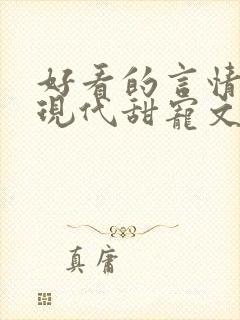 好看的言情
现代甜宠文
真庸